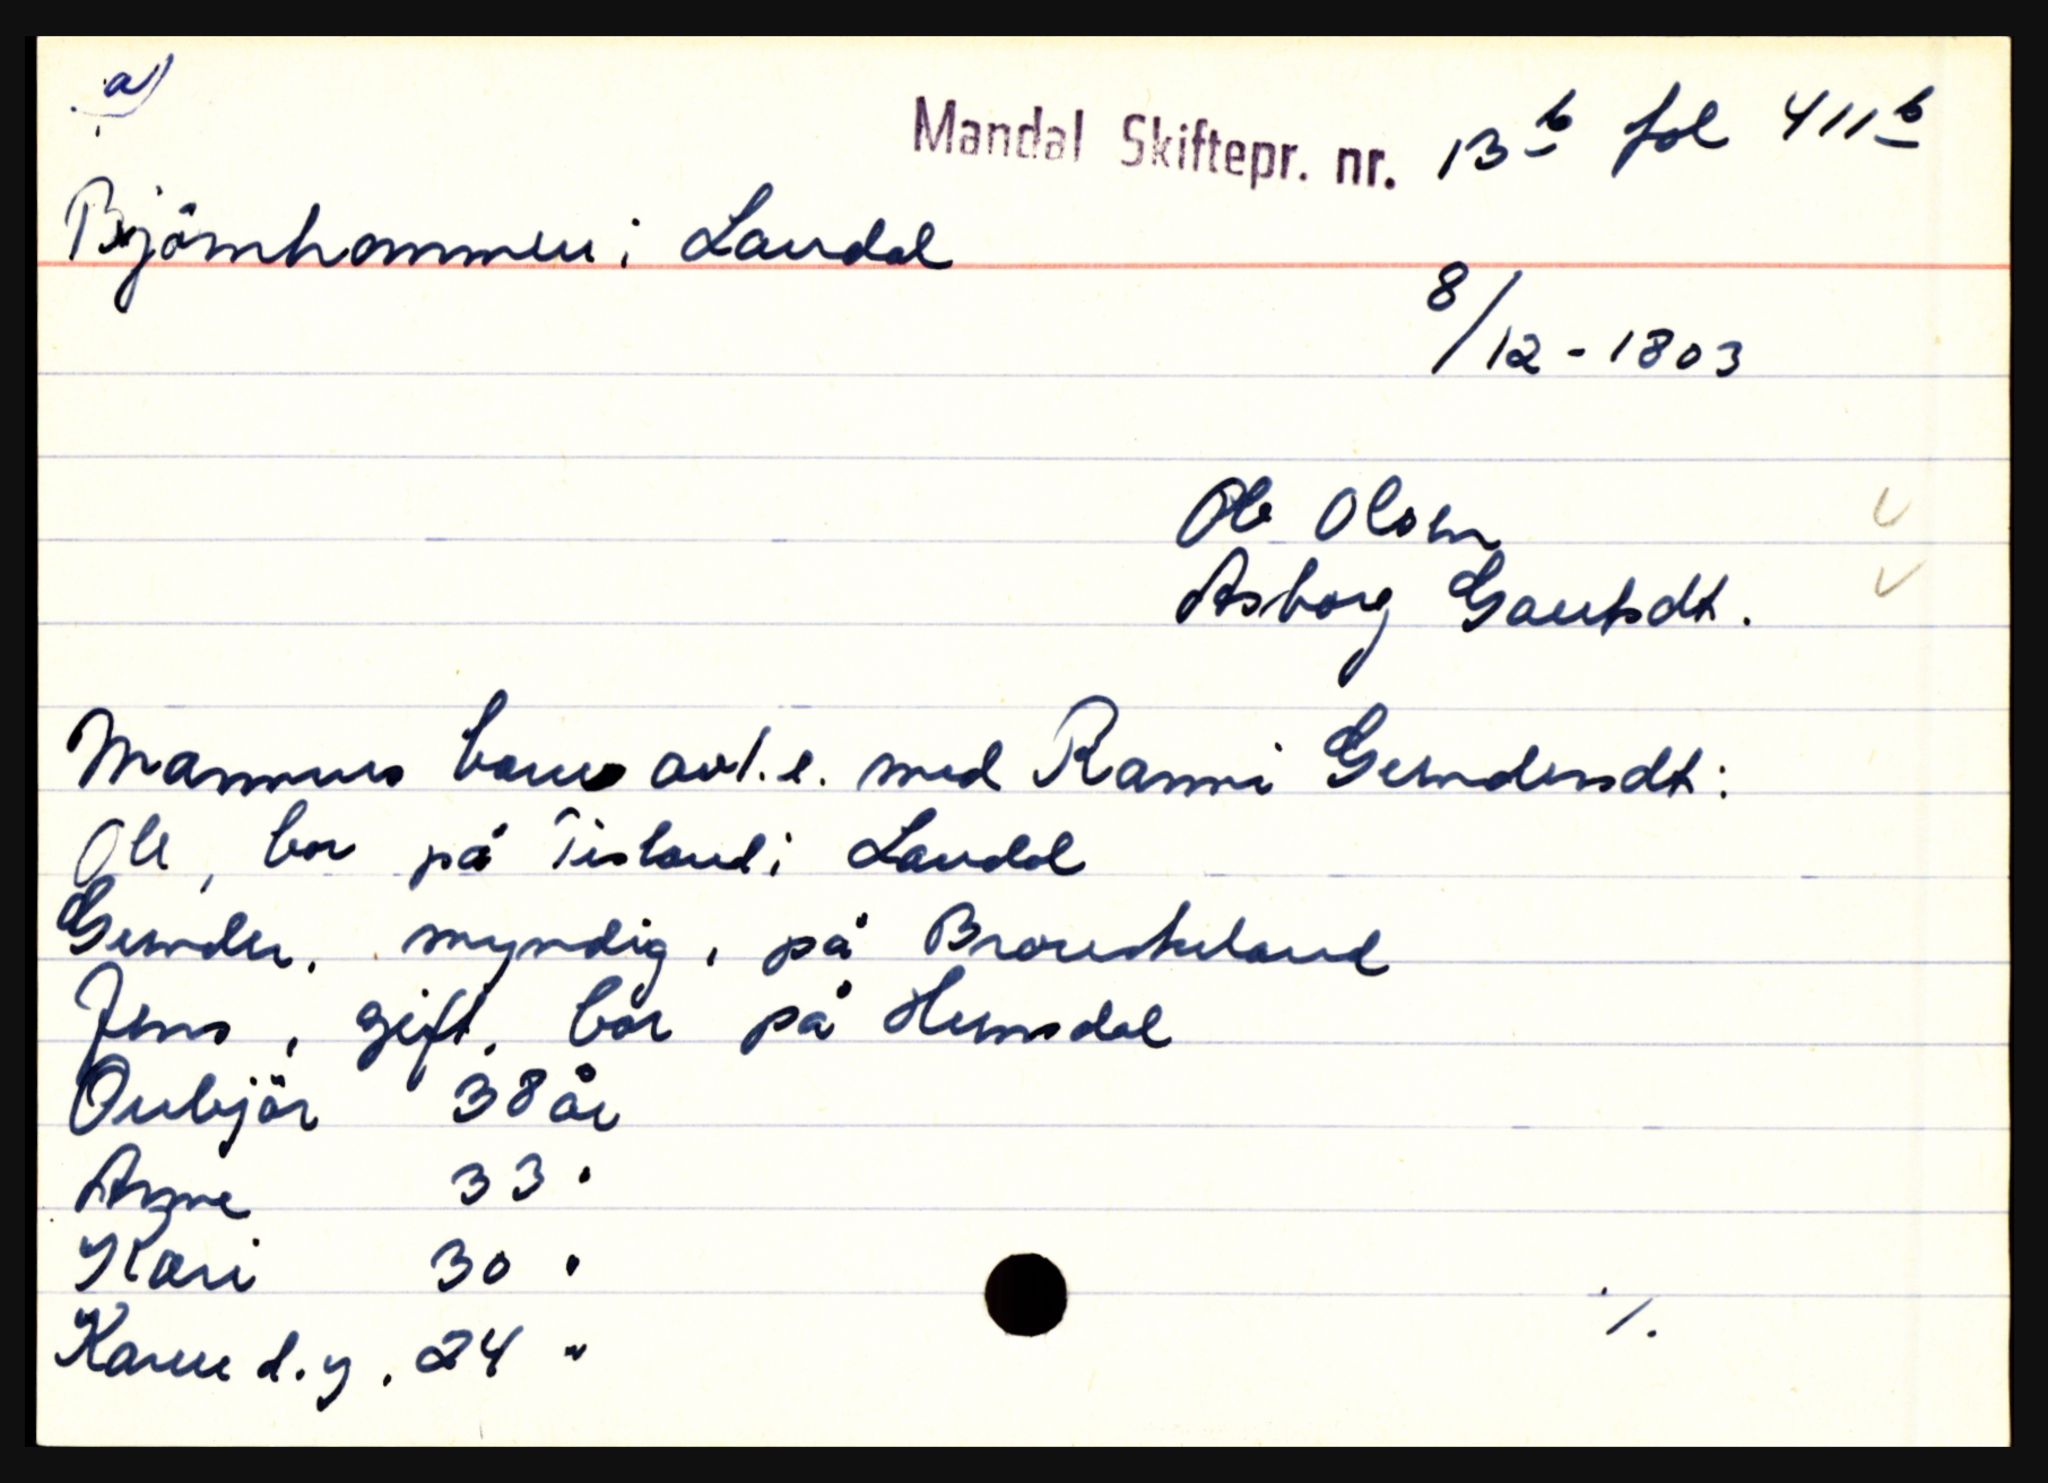 a)
Mandal Skiftepr. nr. 13b fol 411b
Björnhommen i Laudal
8/12 - 1803
Ole Olsen
Asborg Gautsdt.
Mannens barn av 1.e. med Ranni Gundersdt:
Ole, bor på Tisland i Laudal
Gunder, myndig, på Brouskeland
Jens, gift, bor på Hunsdal
Gubjör 38 år
Anne 33 "
Kari 30 "
Karen d.y. 24 "
./.